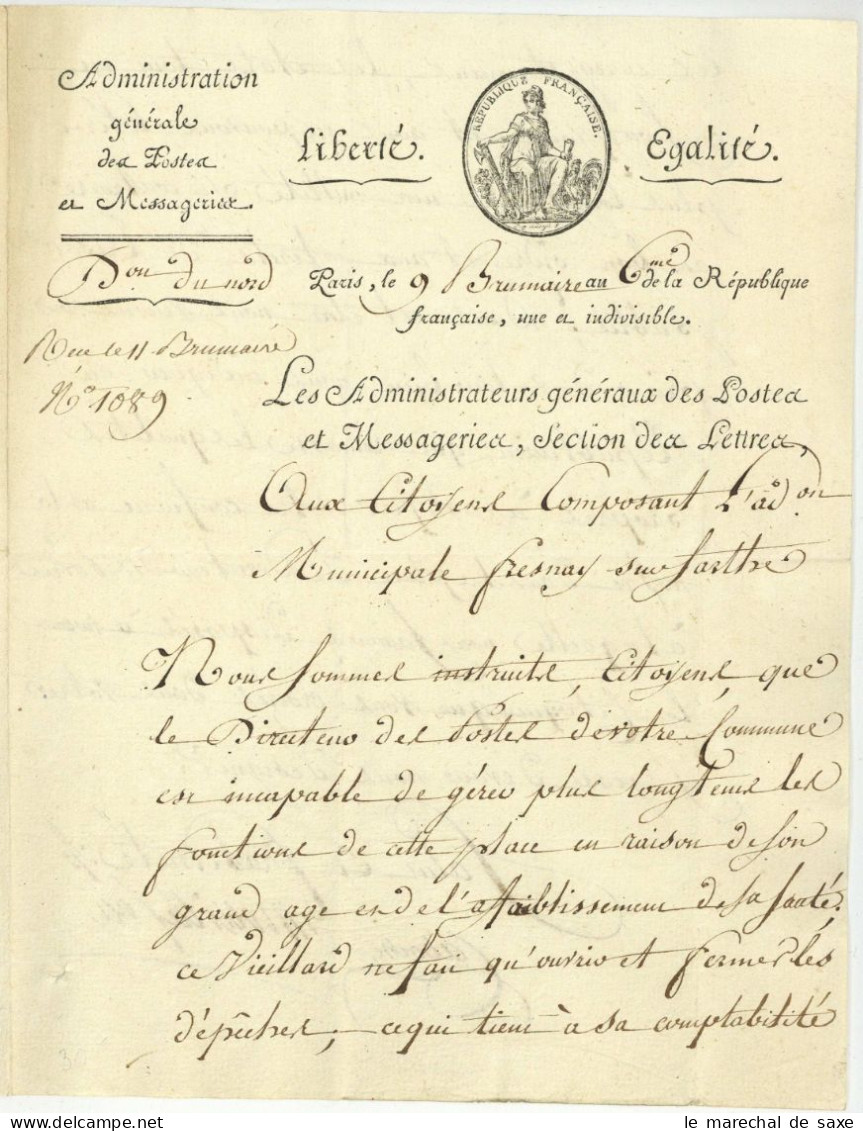 Administration
générale
des Postes
et Messageries.
Liberté.
RÉPUBLIQUE FRANÇAISE.
Egalité.
Don du nord
Paris, le 9 Brumaire an 6me de la République
française, une et indivisible.
Reçu le 11 Brumaire
N° 1089
Les Administrateurs généraux des Postes
et Messageries, Section des Lettres,
Aux Citoyens Composant L'adon
Municipale fresnay sur Sarthe
Nous Sommes instruits, Citoyens, que
le Directeur des Postes de votre Commune
est incapable de gérer plus longtems les
fonctions de cette place en raison de son
grand age et de l'affaiblissement de sa santé.
ce Vieillard ne fait qu'ouvrir et fermer les
dépêches, ce qui tient à sa comptabilité
le marechal de saxe